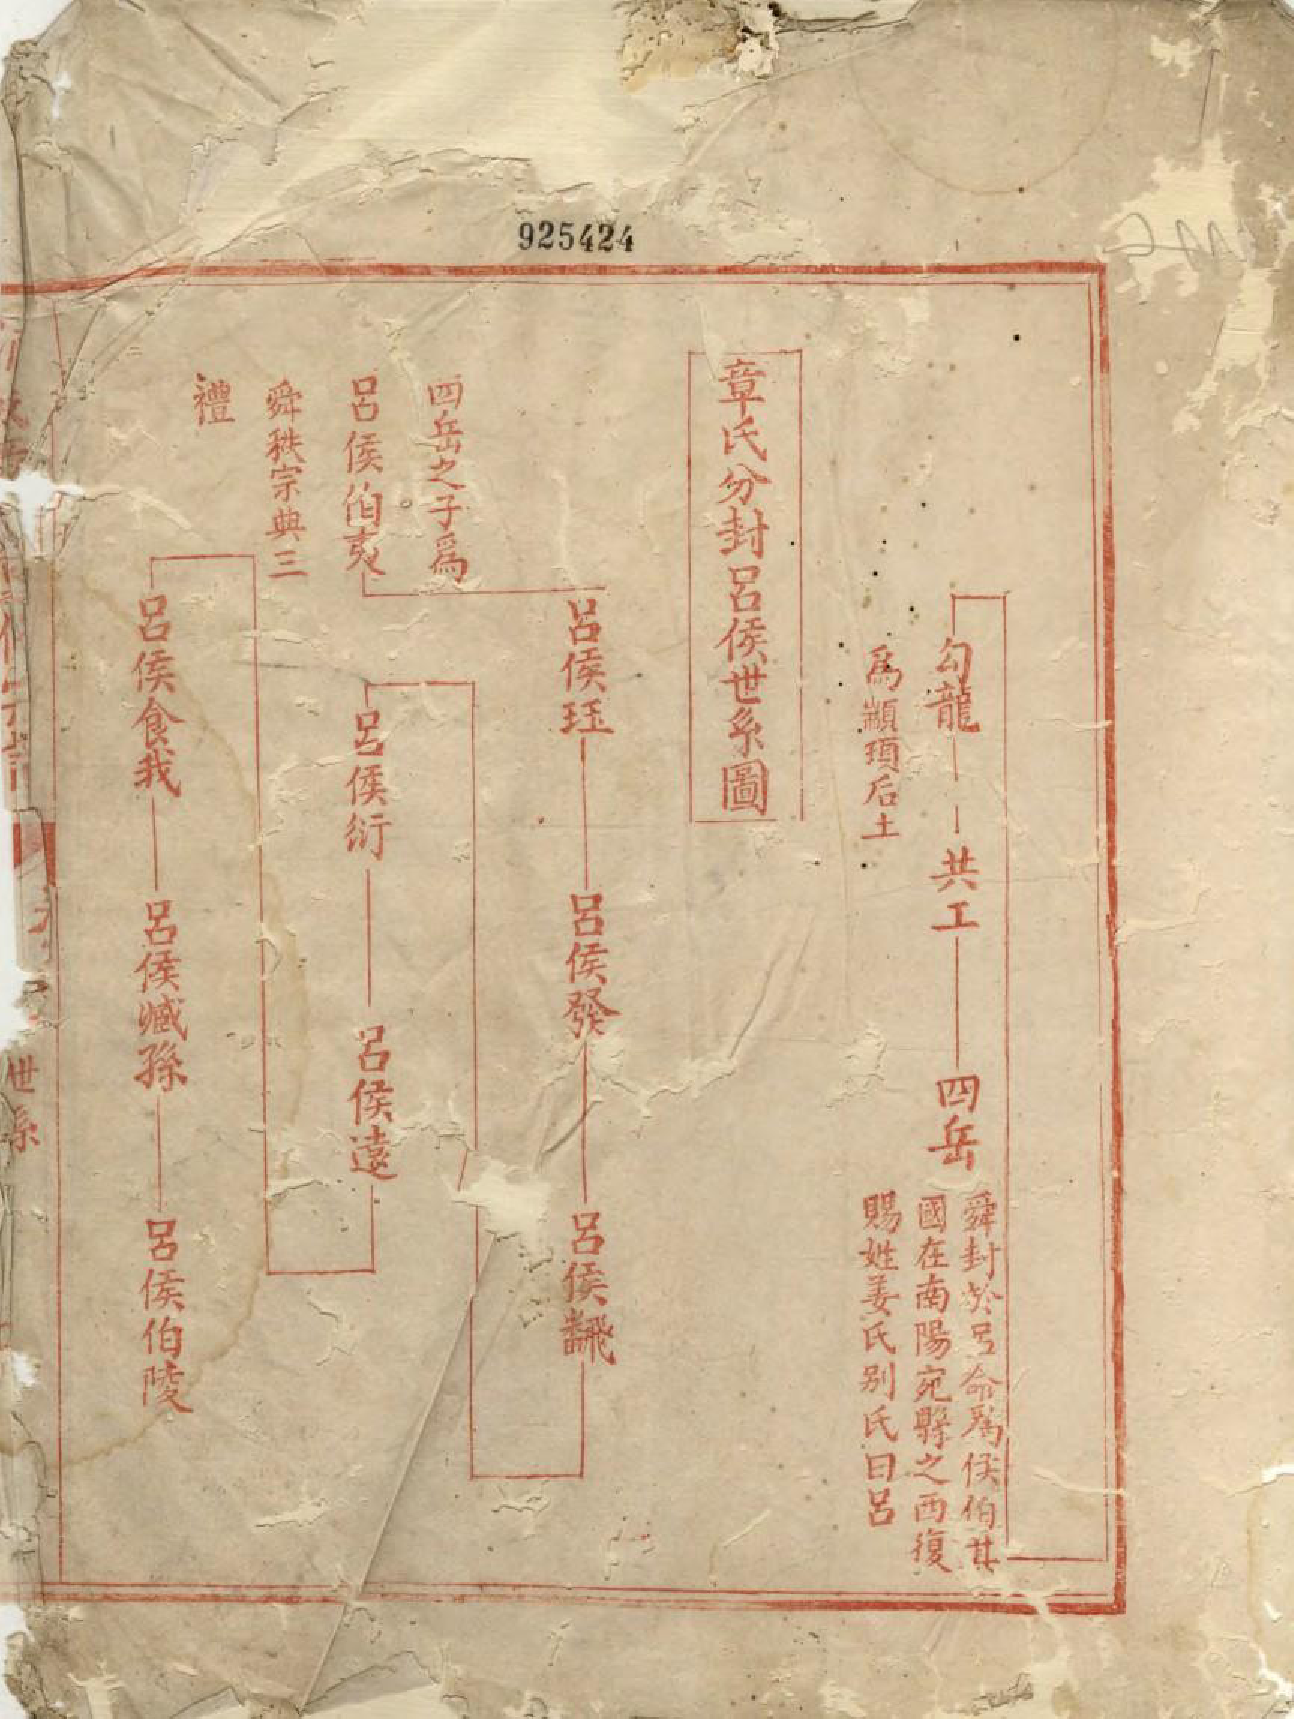 925424
勾龍
爲顓頊后土
共工
四岳
舜封於呂命爲侯伯其
國在南陽宛縣之西復
賜姓姜氏别氏曰呂
章氏分封呂侯世系圖
四岳之子爲
呂侯伯夷
舜秩宗典三
禮
呂侯珏
呂侯發
呂侯飜
呂侯衍
呂侯遠
呂侯食我
呂侯臧孫
呂侯伯陵
世系